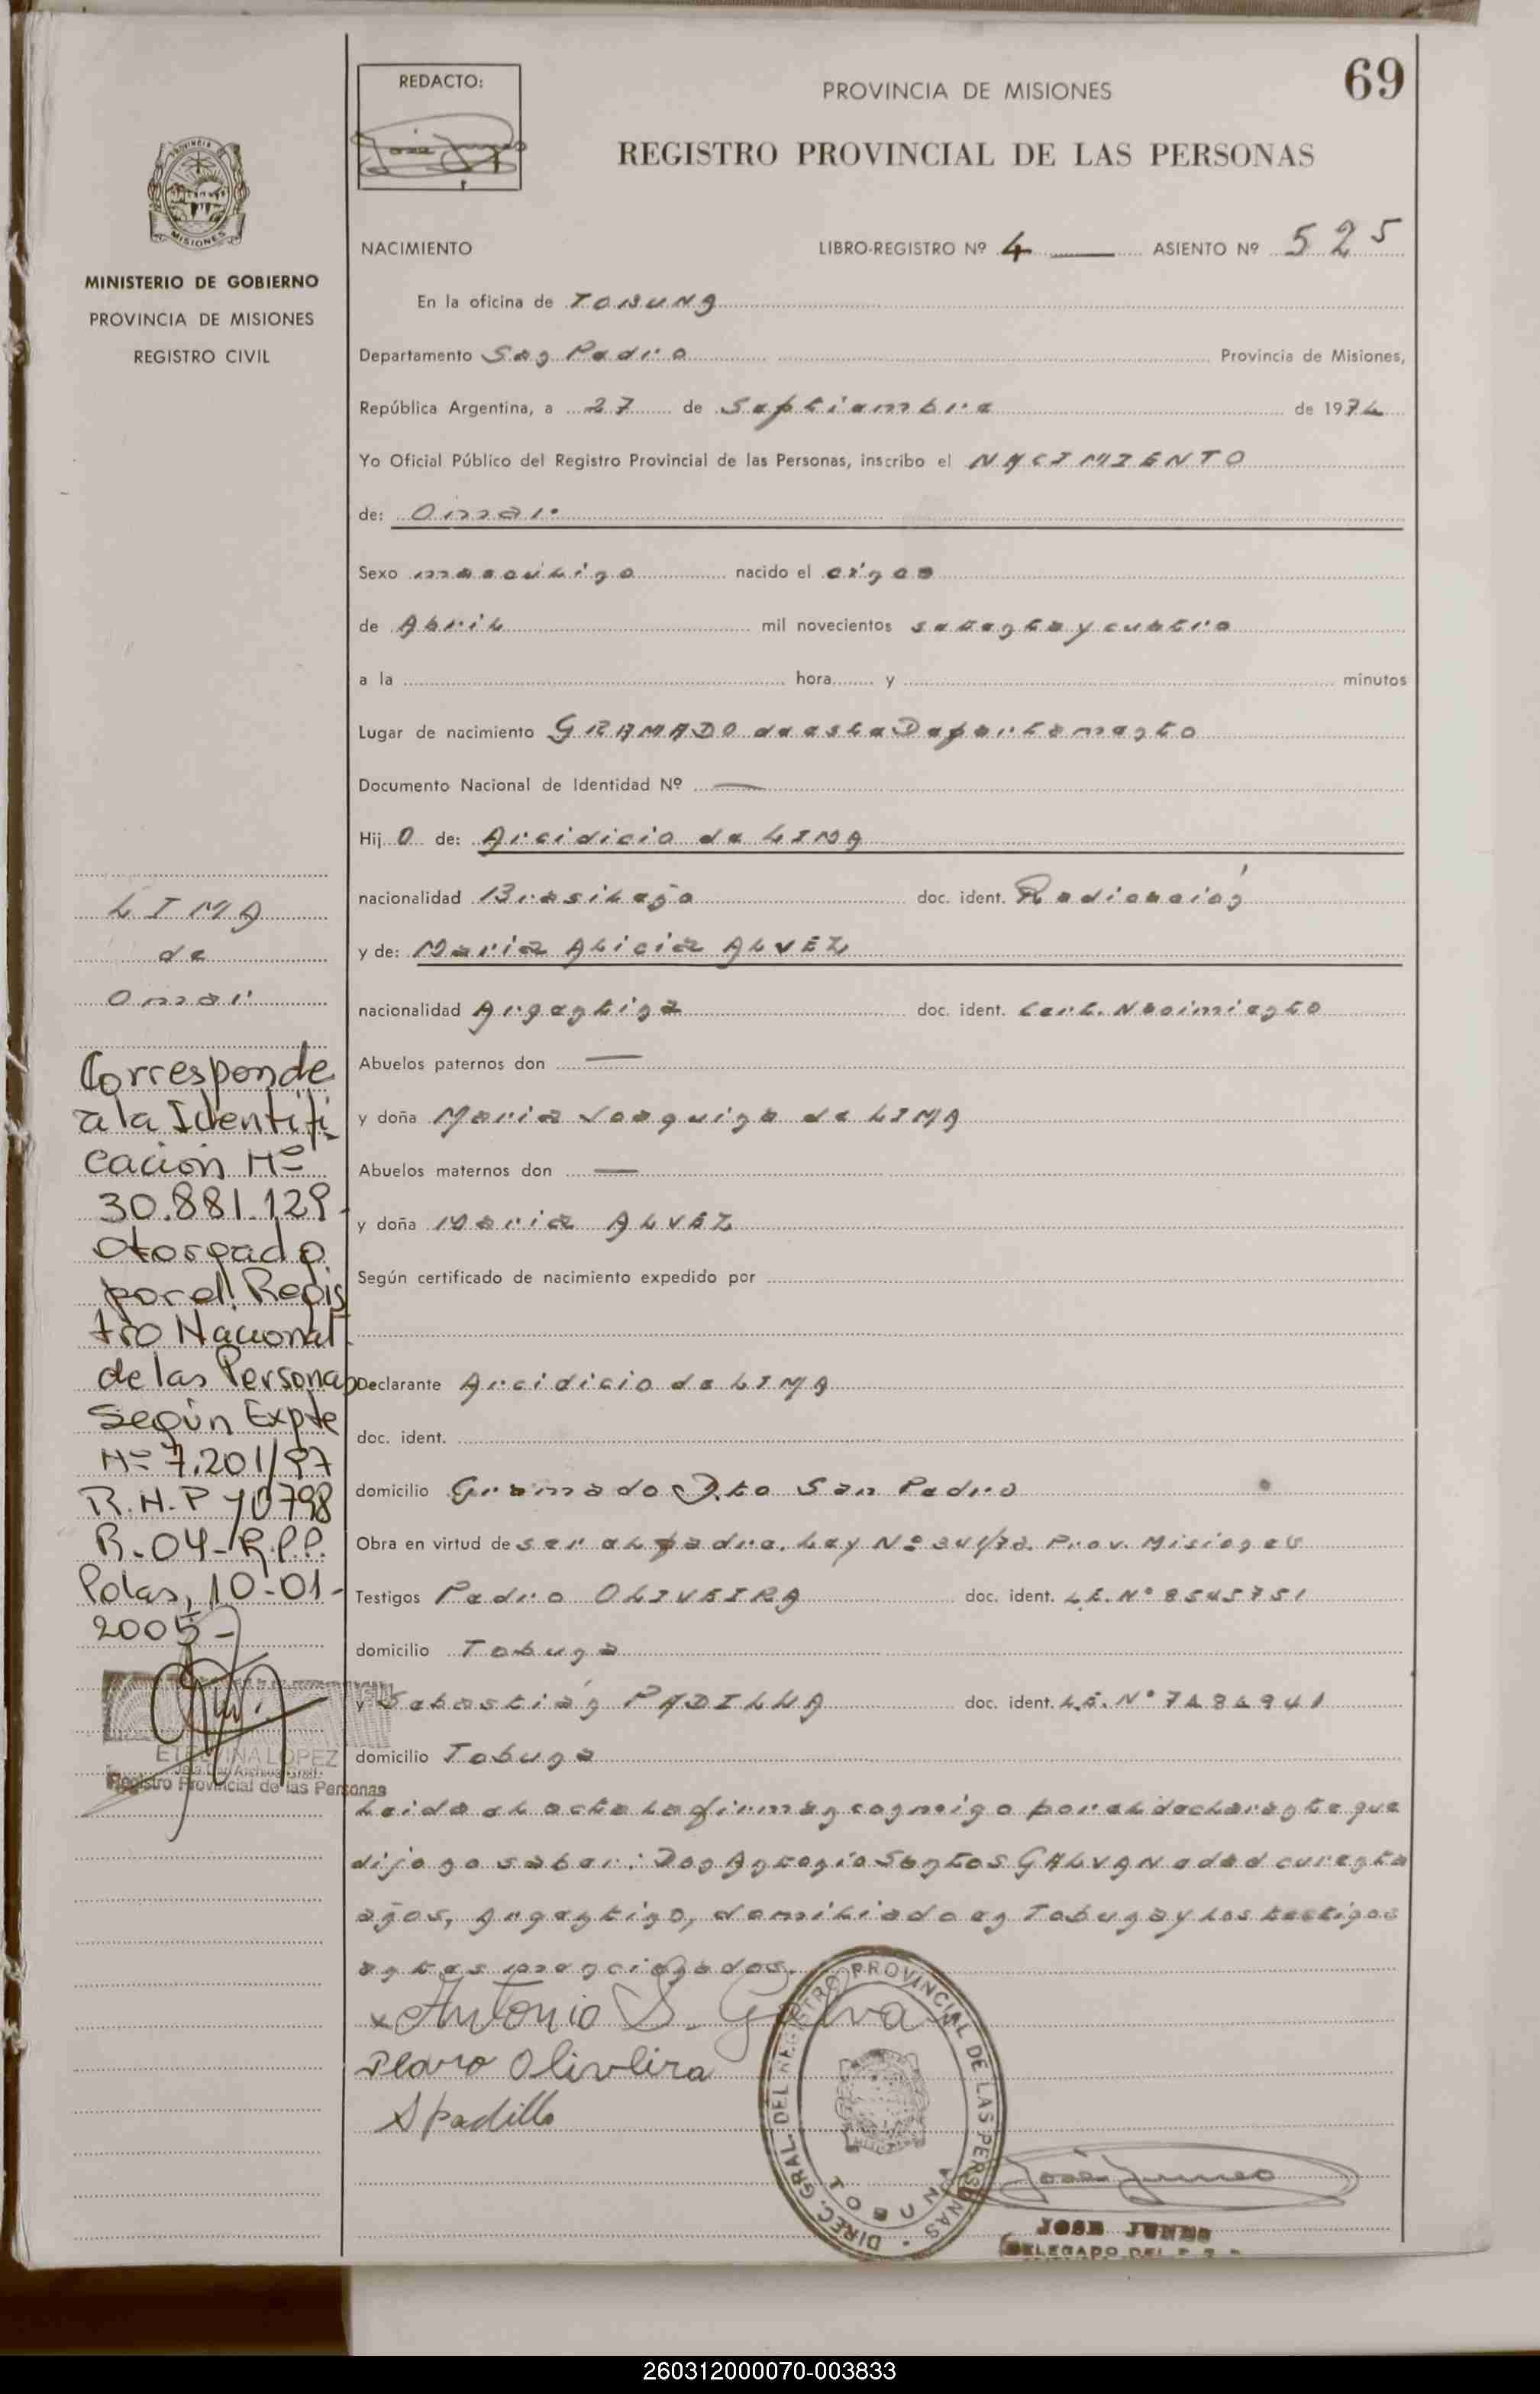 69
REDACTO:
PROVINCIA DE MISIONES
REGISTRO PROVINCIAL DE LAS PERSONAS
MISIONES
MINISTERIO DE GOBIERNO
PROVINCIA DE MISIONES
REGISTRO CIVIL
NACIMIENTO LIBRO-REGISTRO Nº 4 ASIENTO Nº 525
En la oficina de TOBUNA
Departamento San Pedro Provincia de Misiones,
República Argentina, a 27 de Septiembre de 1974
Yo Oficial Público del Registro Provincial de las Personas, inscribo el NACIMIENTO
de: Omar
Sexo masculino nacido el cinco
de Abril mil novecientos setenta y cuatro
a la hora y minutos
Lugar de nacimiento GRAMADO de este Departamento
Documento Nacional de Identidad Nº —
Hij o de: Arcidicio de LIMA
nacionalidad Brasileño doc. ident. Radicación
y de: Maria Alicia ALVEZ
nacionalidad Argentina doc. ident. Cert. Nacimiento
Abuelos paternos don —
y doña Maria Joaquina de LIMA
Abuelos maternos don —
y doña Maria ALVEZ
Según certificado de nacimiento expedido por
Declarante Arcidicio de LIMA
doc. ident.
domicilio Gramado Dto San Pedro
Obra en virtud de ser el padre. Ley Nº 341/72. Prov. Misiones
Testigos Pedro OLIVEIRA doc. ident. L.E. Nº 8545751
domicilio Tobuna
y Sebastián PADILLA doc. ident. L.E. Nº 7484941
domicilio Tobuna
Leida el acta la firman conmigo por el declarante que
dijo no saber: Don Antonio Santos GALVAN edad curenta
años, Argentino, domiliado en Tobuna y los testigos
antes mencionados.
Antonio S. Galva
Pedro Oliveira
S Padilla
DIREC. GRAL. DEL REGISTRO PROVINCIAL DE LAS PERSONAS
TOBUNA
José Junes
JOSE JUNES
DELEGADO DEL
LIMA
de
Omar
Corresponde
a la Identifi
cación Nº
30.881.129-
otorgado
por el Regis
tro Nacional
de las Personas
Según Expte
Nº 7.201/97
R.N.P y 0798
R-04-R.P.P.
Pdas, 10-01-
2005-
ETELVINA LOPEZ
Registro Provincial de las Personas
260312000070-003833